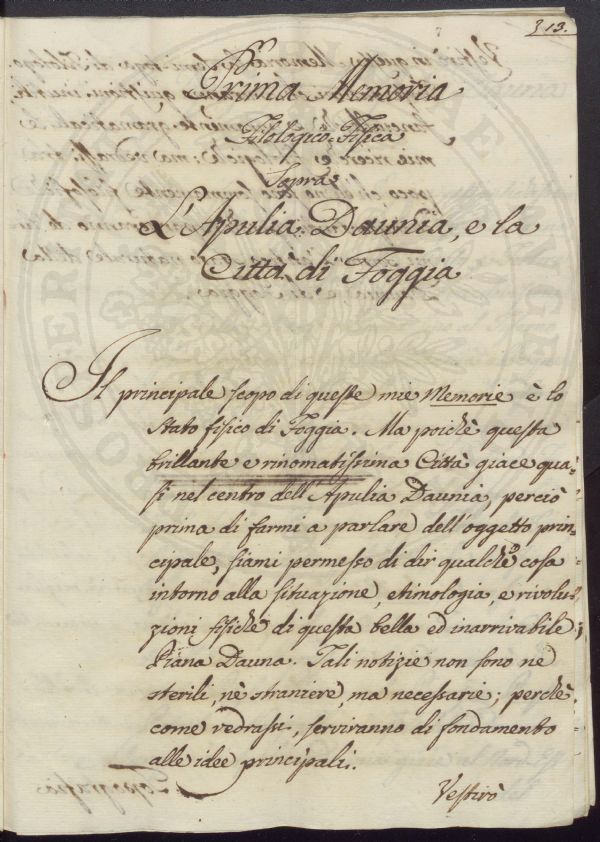 313.
Prima Memoria
Filologico-Fisica
Sopra
L'Apulia Daunia, e la
Città di Foggia
Il principale scopo di queste mie Memorie è lo
stato fisico di Foggia. Ma poichè questa
brillante e rinomatissima Città giace qua-
si nel centro dell'Apulia Daunia, perciò
prima di farmi a parlare dell'oggetto prin-
cipale, siami permesso di dir qualche cosa
intorno alla situazione, etimologia, e rivolu-
zioni fisiche di questa bella ed inarrivabile
Piana Dauna. Tali notizie non sono nè
sterili, nè straniere, ma necessarie; perchè
come vedrassi, serviranno di fondamento
alle idee principali.
Vestirò